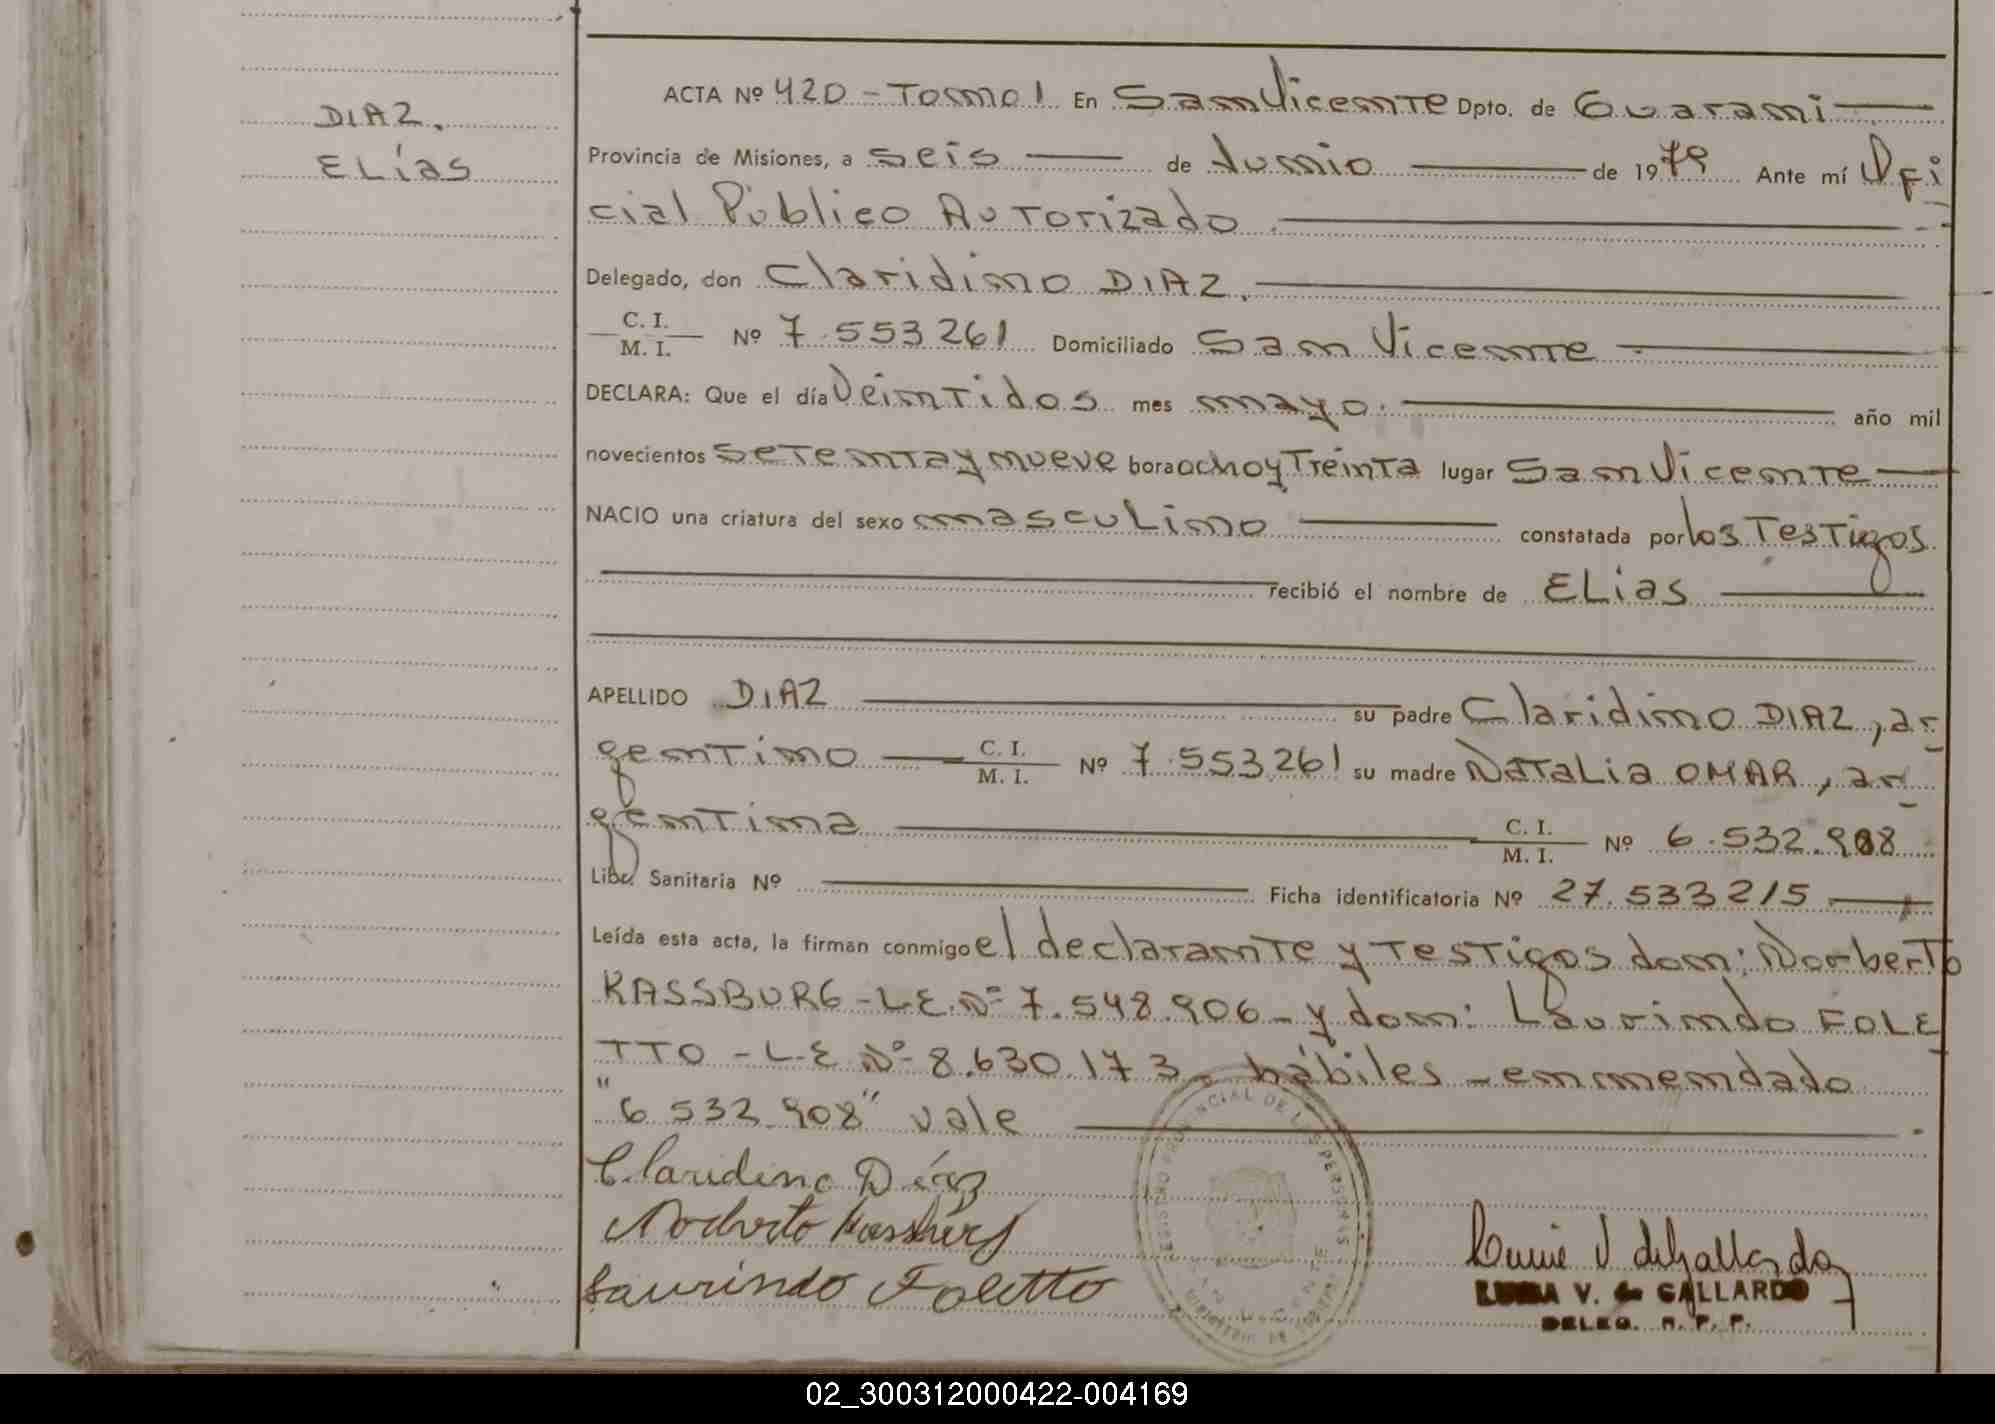 DIAZ.
ELías
ACTA Nº 420 - Tomo 1 En San Vicente Dpto. de Guarani
Provincia de Misiones, a seis de Junio de 1979 Ante mí Ofi
cial Público Autorizado
Delegado, don Claridino DIAZ.
C. I.
M. I.
Nº 7.553261 Domiciliado San Vicente
DECLARA: Que el día Veintidos mes mayo. año mil
novecientos setenta y nueve hora ocho y Treinta lugar San Vicente
NACIO una criatura del sexo masculino constatada por los Testigos
recibió el nombre de ELias
APELLIDO DIAZ su padre Claridino DIAZ, ar
gentino C. I. / M. I. Nº 7.553261 su madre NATALia OMAR, ar
gentina C. I. / M. I. Nº 6.532.908
Libr. Sanitaria Nº Ficha identificatoria Nº 27.533215
Leída esta acta, la firman conmigo el declarante y Testigos don: Norberto
KASSBURG - L.E. Nº 7.548.906 - y don: Laurindo FOLE
TTO - L.E Nº 8.630.173. hábiles - enmendado
"6.532.908" vale
Claridino Díaz
Norberto Kassburg
Laurindo Foletto
REGISTRO PROVINCIAL DE LAS PERSONAS
V. de Gallardo
LUISA V. de GALLARDO
DELEG. R. P. P.
02_300312000422-004169